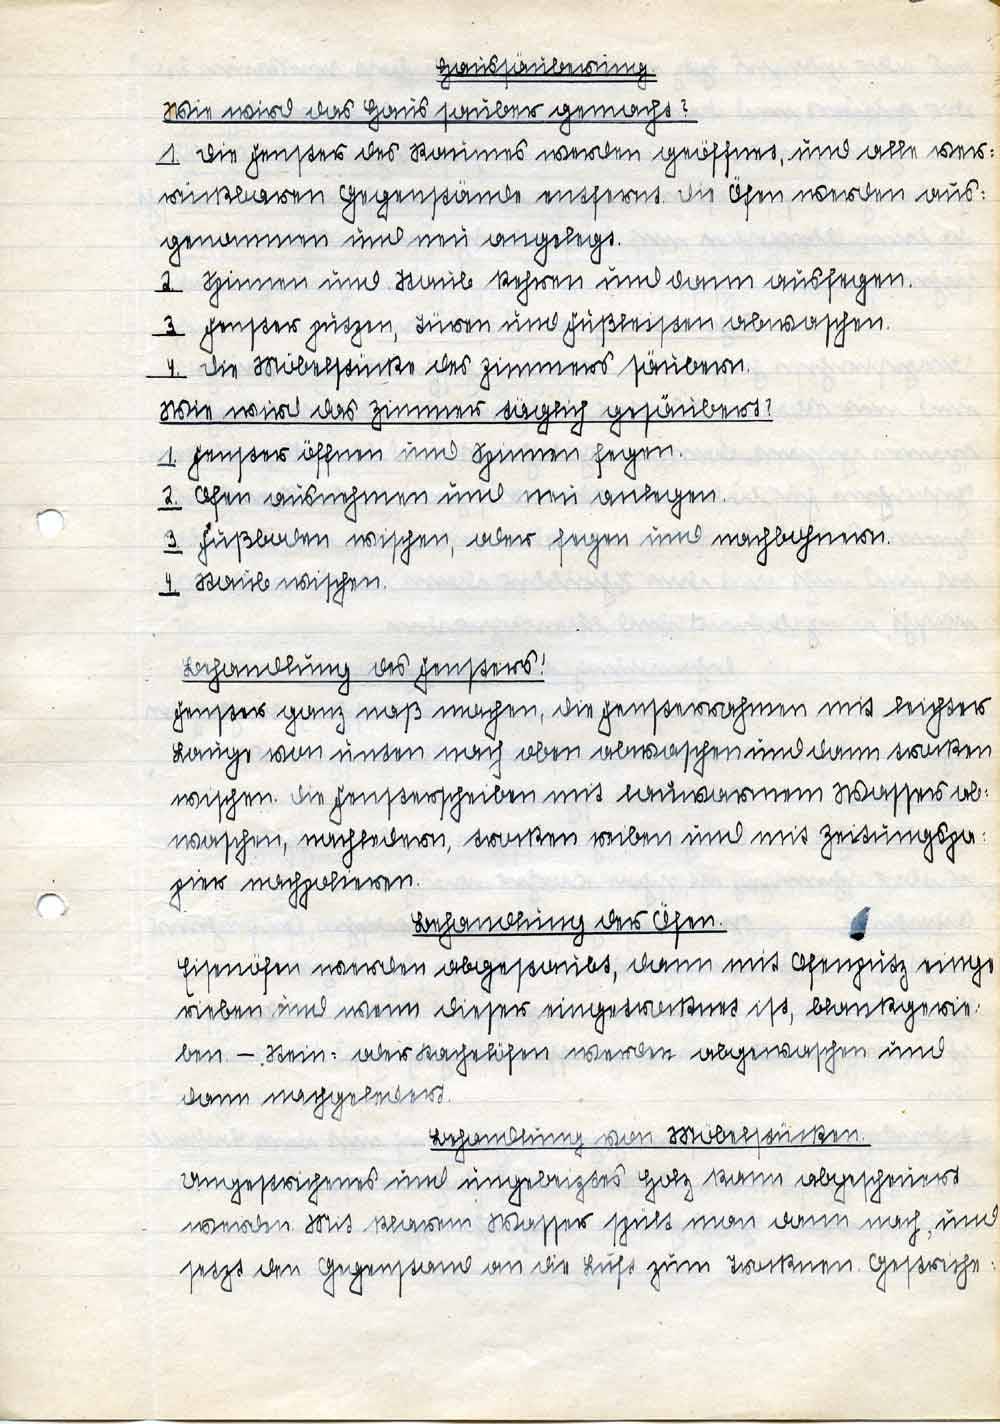 Haussäuberung.
Wie wird das Haus sauber gemacht?
1. Die Fenster des Raumes werden geöffnet, und alle ver=
rückbaren Gegenstände entfernt. Die Öfen werden aus=
genommen und neu angelegt.
2. Spinnen und Staub kehren und dann ausfegen.
3. Fenster putzen, Türen und Fußleisten abwaschen.
4. Die Möbelstücke des Zimmers säubern.
Wie wird das Zimmer täglich gesäubert?
1. Fenster öffnen und Spinnen fegen.
2. Ofen ausnehmen und neu anlegen.
3. Fußboden wischen, oder fegen und nachbohnern.
4. Staub wischen.
Behandlung des Fensters!
Fenster ganz naß machen, die Fensterrahmen mit leichter
Lauge von unten nach oben abwaschen und dann trocken
wischen. Die Fensterscheiben mit lauwarmem Wasser ab=
waschen, nachledern, trocken reiben und mit Zeitungspa=
pier nachpolieren.
Behandlung der Öfen.
Eisenöfen werden abgestaubt, dann mit Ofenputz einge
rieben und wenn dieser eingetrocknet ist, blankgerie=
ben. – Stein= oder Kachelöfen werden abgewaschen und
dann nachgeledert.
Behandlung von Möbelstücken.
Ungestrichenes und ungebeiztes Holz kann abgescheuert
werden. Mit klarem Wasser spült man dann nach, und
setzt den Gegenstand an die Luft zum Trocknen. Gestriche=